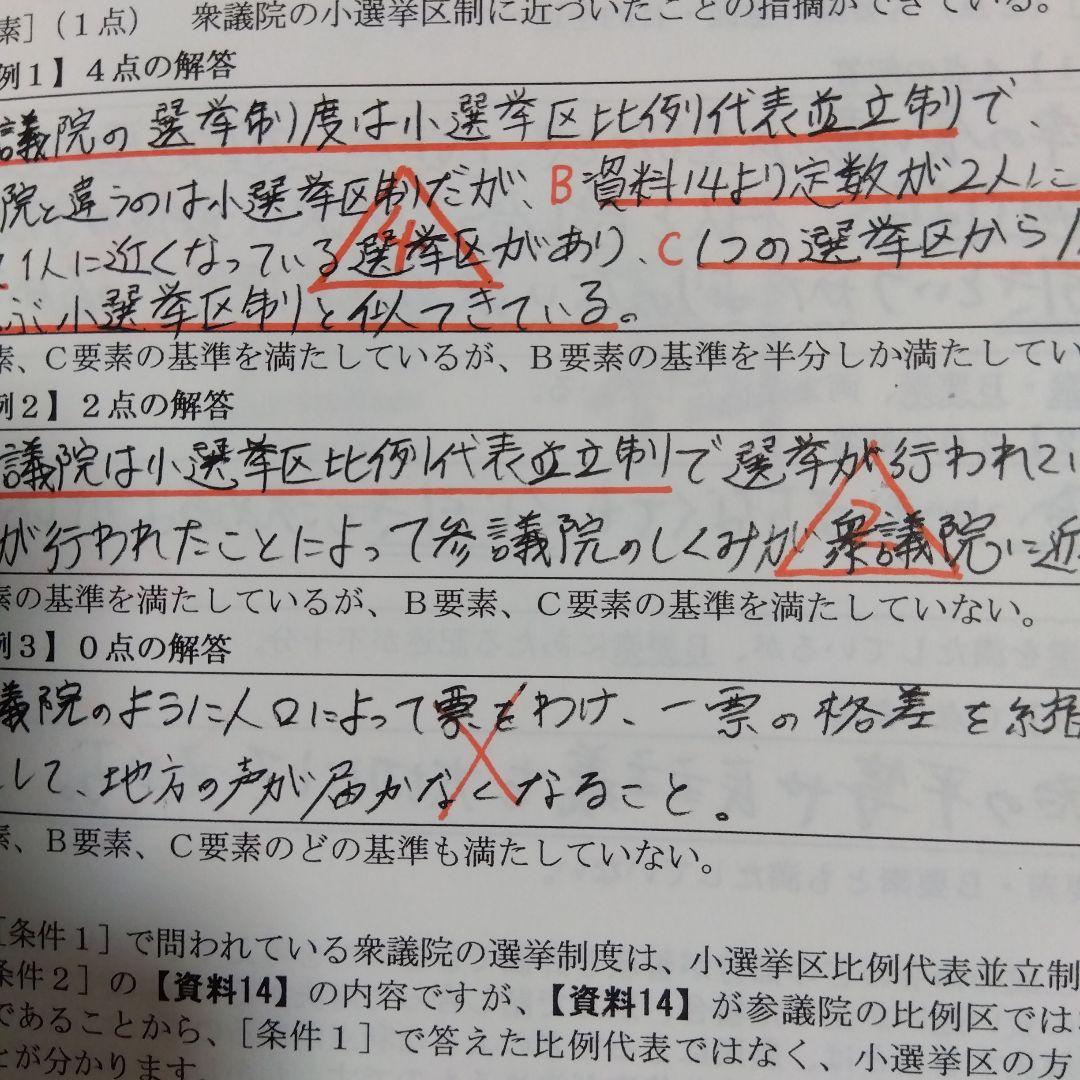 素］（１点）　衆議院の小選挙区制に近づいたことの指摘ができている。
例１】４点の解答
議院の選挙制度は小選挙区比例代表並立制で、
院と違うのは小選挙区制だが、B資料14より定数が2人に
1人に近くなっている選挙区があり、C1つの選挙区から1
ぶ小選挙区制と似てきている。
4
素、Ｃ要素の基準を満たしているが、Ｂ要素の基準を半分しか満たしてい
例２】２点の解答
議院は小選挙区比例代表並立制で選挙が行われてい
が行われたことによって参議院のしくみが衆議院に近
2
素の基準を満たしているが、Ｂ要素、Ｃ要素の基準を満たしていない。
例３】０点の解答
議院のように人口によって票をわけ、一票の格差を縮
して、地方の声が届かなくなること。
素、Ｂ要素、Ｃ要素のどの基準も満たしていない。
［条件１］で問われている衆議院の選挙制度は、小選挙区比例代表並立制
条件２］の【資料14】の内容ですが、【資料14】が参議院の比例区では
であることから、［条件１］で答えた比例代表ではなく、小選挙区の方
とが分かります。